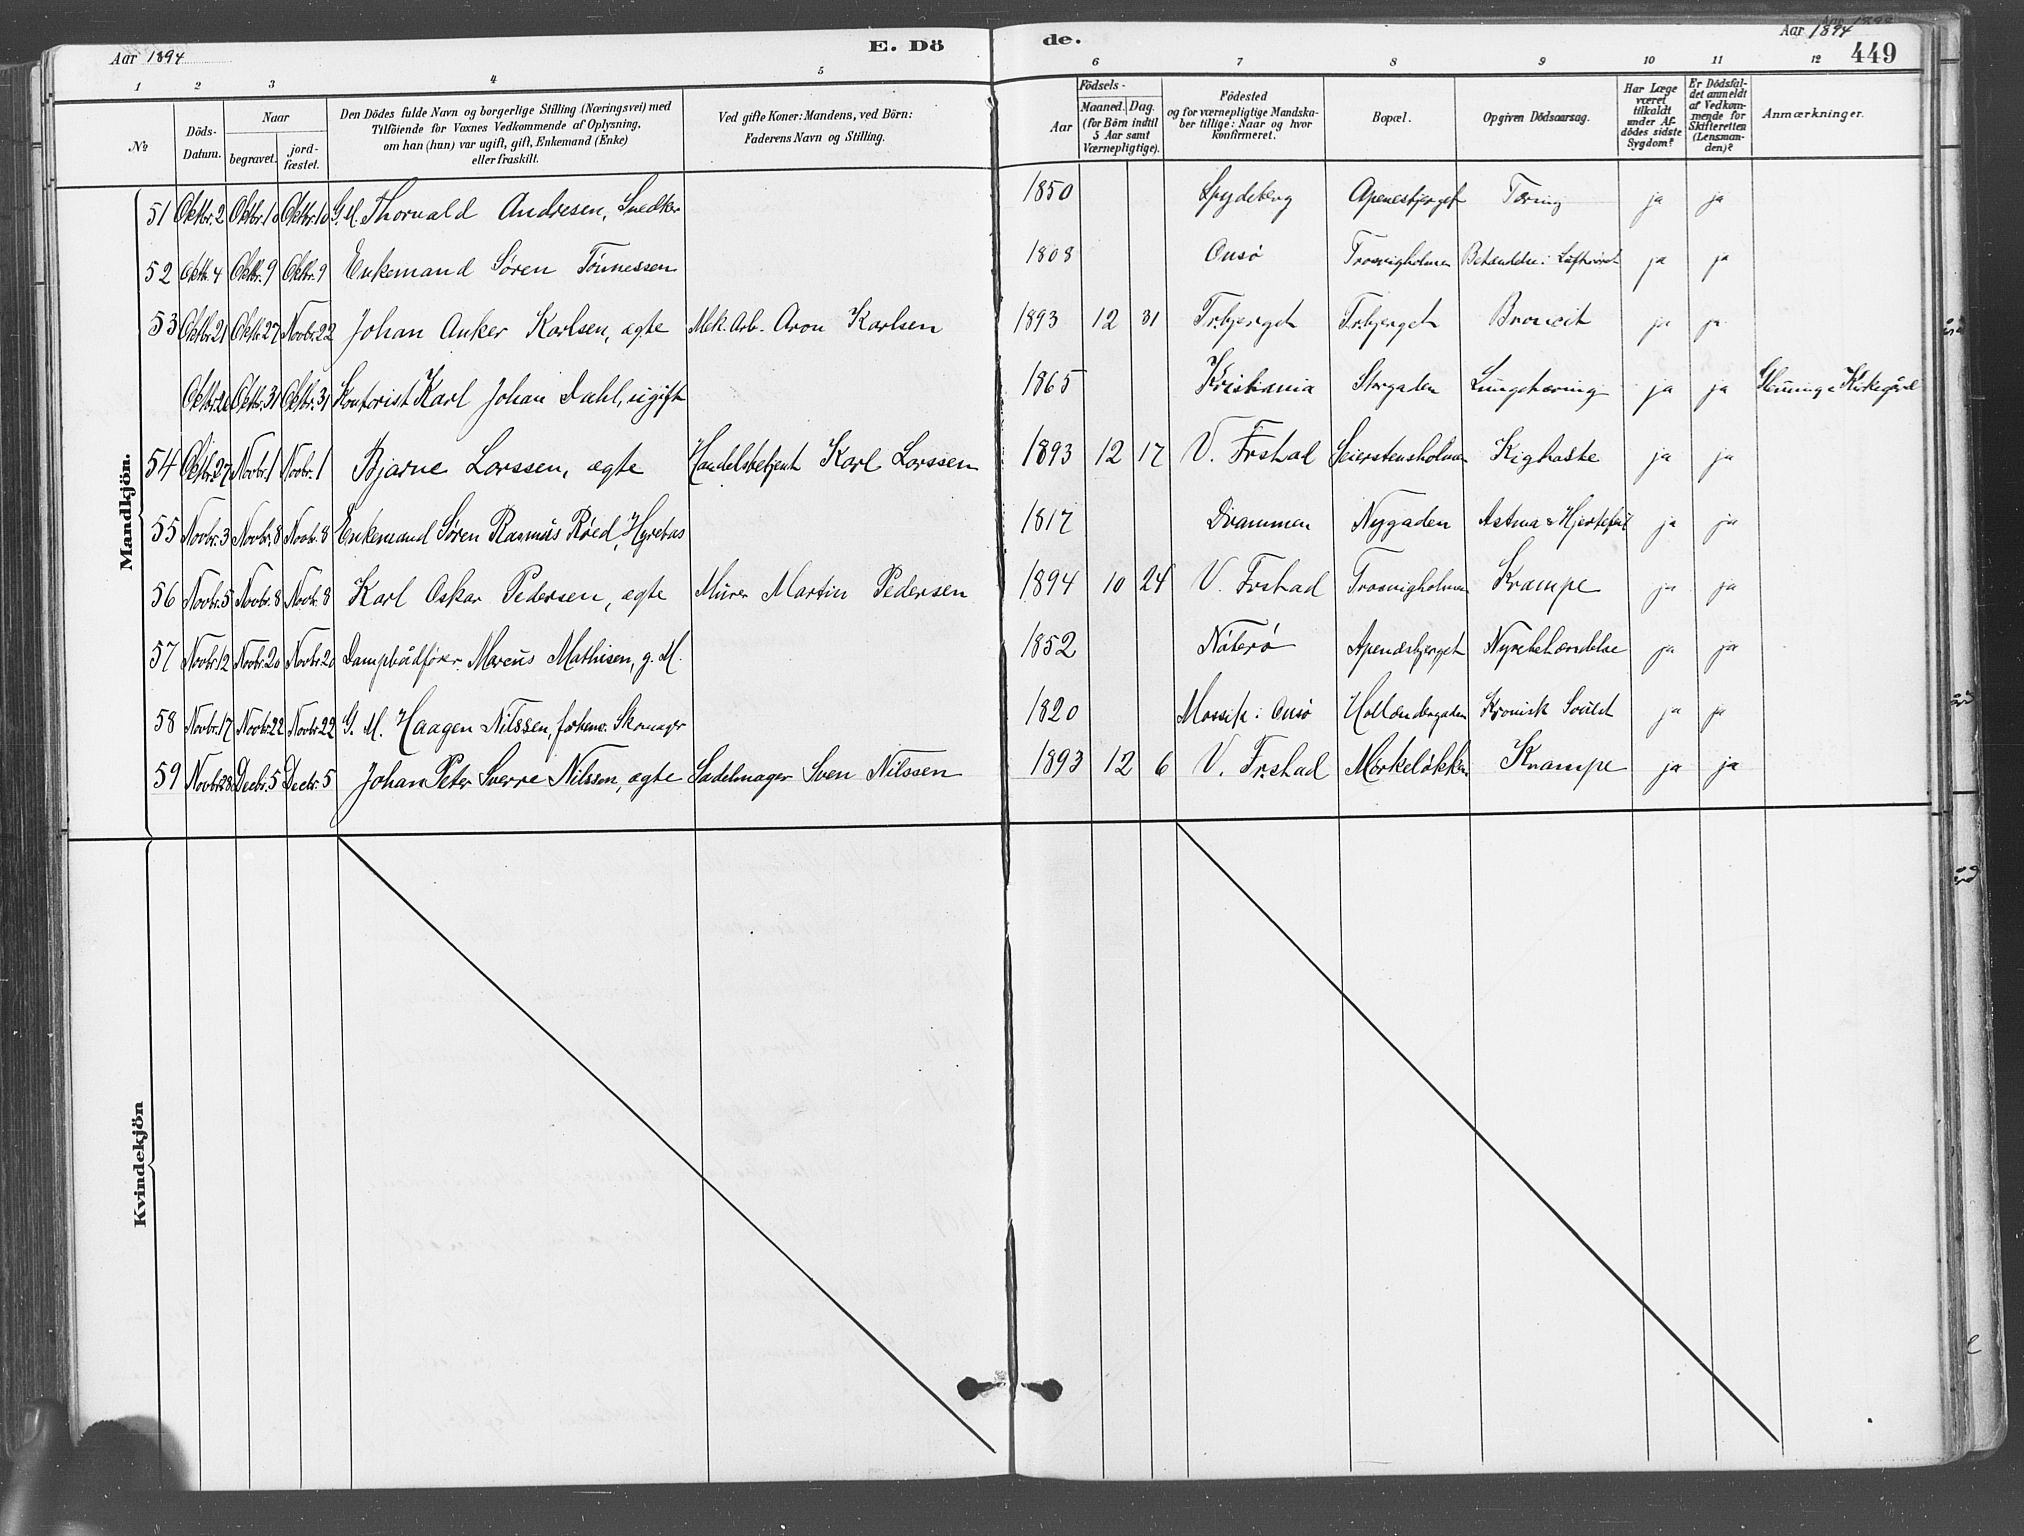 Aar 1894
E. Dö
de.
Aar 1894
449
1 2 3 4 5 6 7 8 9 10 11 12
№
Döds-Datum.
Naar
begravet.
jord-fæstet.
Den Dödes fulde Navn og borgerlige Stilling (Næringsvei) med
Tilföiende for Voxnes Vedkommende af Oplysning,
om han (hun) var ugift, gift, Enkemand (Enke)
eller fraskilt.
Ved gifte Koner: Mandens, ved Börn:
Faderens Navn og Stilling.
Födsels-
Aar
Maaned. Dag.
(for Börn indtil
5 Aar samt
Værnepligtige).
Födested
og for værnepligtige Mandska-
ber tillige: Naar og hvor
konfirmeret.
Bopæl.
Opgiven Dödsaarsag.
Har Læge
været
tilkaldt
under Af-
dödes sidste
Sygdom?
Er Dödsfal-
det anmeldt
af Vedkom-
mende for
Skifteretten
(Lensman-
den)?
Anmærkninger.
Mandkjön.
51 Oktbr. 2 Oktbr. 10 Oktbr. 10 G. M. Thorvald Andresen, Snedker 1850 Spydeberg Apenesbjerget Tæring ja ja
52 Oktbr. 4 Oktbr. 9 Oktbr. 9 Enkemand Søren Tönnessen 1808 Onsö Trosvigholmen ja ja
53 Oktbr. 21 Oktbr. 27 Novbr. 22 Johan Anker Karlsen, ægte Mek. Arb. Aron Karlsen 1893 12 31 Frbjerget Frbjerget Broncit ja ja
Oktbr. 26 Oktbr. 31 Oktbr. 31 Kontorist Karl Johan Dahl, ugift 1865 Kristiania Storgaden Lungetæring ja ja Kirkegård
54 Oktbr. 27 Novbr. 1 Novbr. 1 Bjarne Larssen, ægte Handelsbetjent Karl Larssen 1893 12 17 V. Frstad Seierstensholmen Kighoste ja ja
55 Novbr. 3 Novbr. 8 Novbr. 8 Enkemand Søren Rasmus Røed, 1817 Drammen Nygaden Astma & Hjertefeil ja ja
56 Novbr. 5 Novbr. 8 Novbr. 8 Karl Oskar Pedersen, ægte Murer Martin Pedersen 1894 10 24 V. Frstad Trosvigholmen Krampe ja ja
57 Novbr. 12 Novbr. 20 Novbr. 20 Dampbådfører Marcus Mathisen, g. M. 1852 Nöterö Apenæsbjerget Nyrebetændelse ja ja
58 Novbr. 17 Novbr. 22 Novbr. 22 G. M. Haagen Nilssen, forhenv. Skomager 1820 Mossik i Onsö Hollændergaden Kronisk ja ja
59 Novbr. 28 Decbr. 5 Decbr. 5 Johan Peter Sverre Nilssen, ægte Sadelmager Sven Nilssen 1893 12 6 V. Frstad Mørkeløkken Krampe ja ja
Kvindekjön